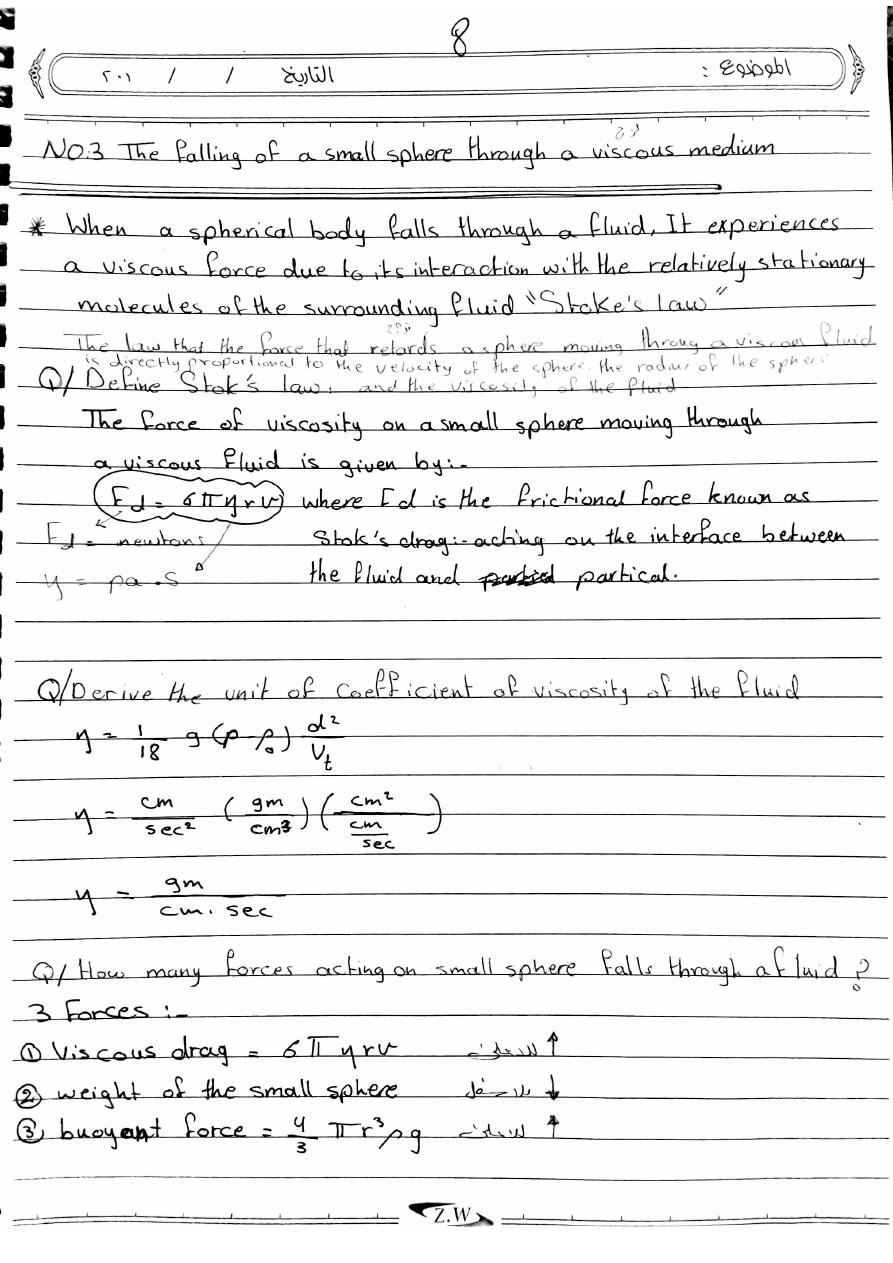 8
الموضوع :
التاريخ / / ٢٠١
لزج
NO.3 The falling of a small sphere through a viscous medium
* When a spherical body falls through a fluid, It experiences
a viscous force due to its interaction with the relatively stationary
molecules of the surrounding fluid "Stoke's law"
The law that the force that retards a sphere moving throug a viscous fluid
is directly proportional to the velocity of the sphere. the radius of the sphere
and the viscosity of the fluid
Q/ Define Stok's law:
The force of viscosity on a small sphere moving through
a viscous fluid is given by:-
Fd = 6πηrv where Fd is the frictional force known as
Fd = newtons Stok's drag:- acting on the interface between
η = pa.s the fluid and partical.
Q/Derive the unit of coefficient of viscosity of the fluid
η = 1/18 g (ρ - ρ₀) d²/Vt
η = cm/sec² (gm/cm³) (cm²/(cm/sec))
η = gm/cm. sec
Q/ How many forces acting on small sphere falls through a fluid ?
3 Forces :-
① Viscous drag = 6πηrv للاعلى ↑
② weight of the small sphere للاسفل ↓
③ buoyant force = 4/3 πr³ρg للاعلى ↑
Z.W